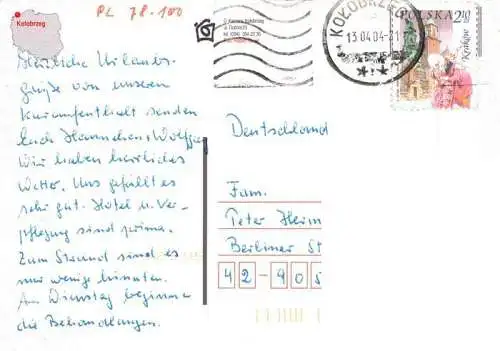 Kołobrzeg
PL 78-100
KOŁOBRZEG
13.04.04-21
POLSKA 2,10
Kraków
Herzliche Urlaubs-
grüße von unserem
Kuraufenthalt senden
Euch Hannchen, Wolfgang
Wir haben herrliches
Wetter. Uns gefällt es
sehr gut. Hotel u. Ver-
pflegung sind prima.
Zum Strand sind es
nur wenige Minuten.
Am Dienstag beginnen
die Behandlungen.
Deutschland
Fam.
Peter Heim
Berliner St
42-905